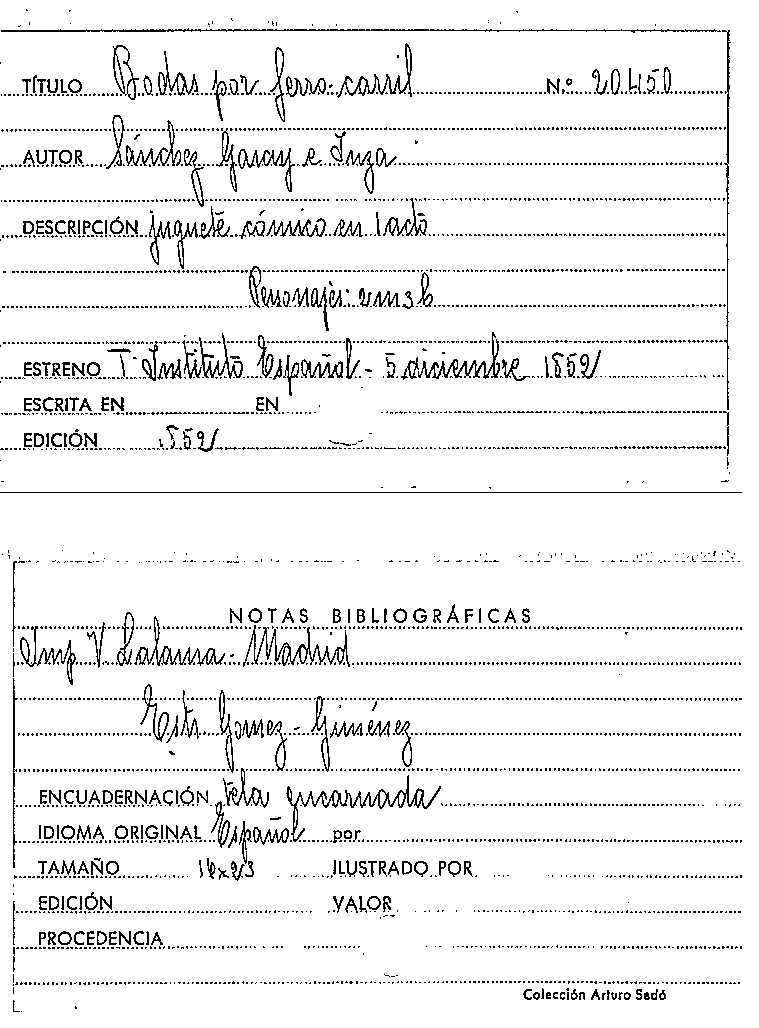 TÍTULO Bodas por ferro-carril N.º 20450
AUTOR Sánchez Garay e Inza
DESCRIPCIÓN juguete cómico en 1 acto
Personajes: 2m3h
ESTRENO T. Instituto Español - 5 diciembre 1852
ESCRITA EN EN
EDICIÓN 1852
NOTAS BIBLIOGRÁFICAS
Imp V. Lalama - Madrid
Estr. Gomez - Giménez
ENCUADERNACIÓN tela encarnada
IDIOMA ORIGINAL Español por
TAMAÑO 16x23 ILUSTRADO POR
EDICIÓN VALOR
PROCEDENCIA
Colección Arturo Sedó